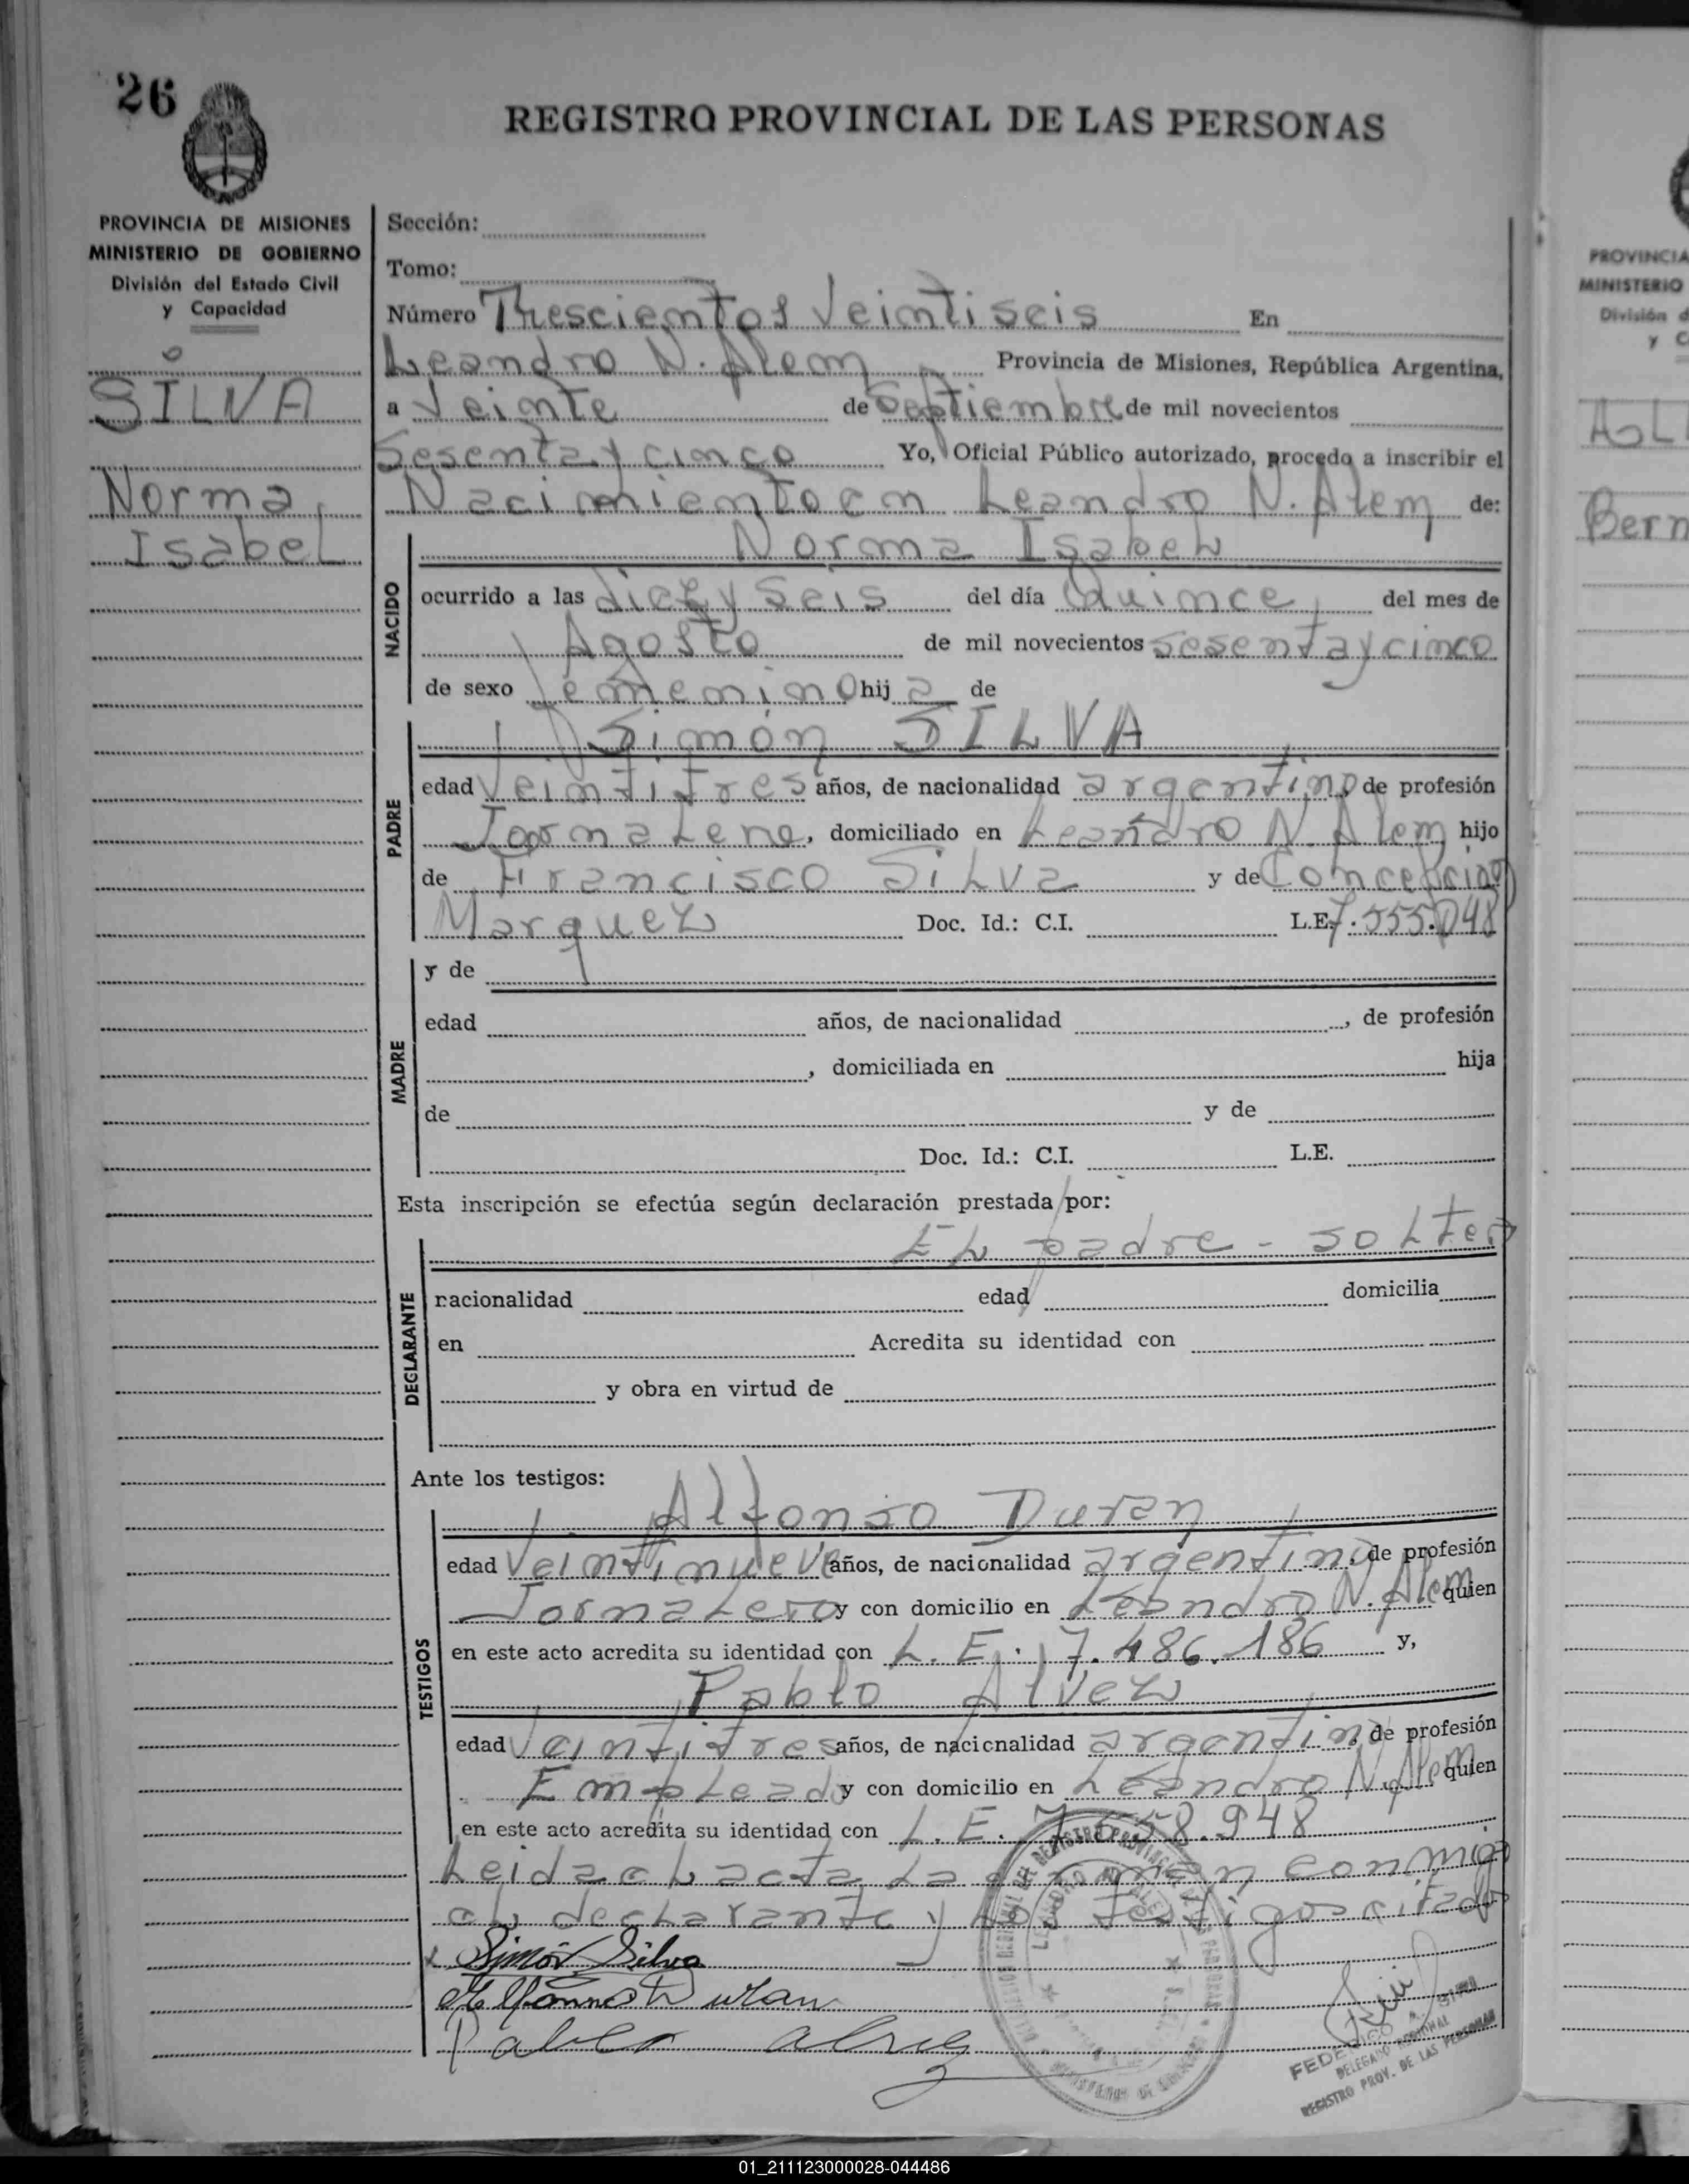 26
REGISTRO PROVINCIAL DE LAS PERSONAS
PROVINCIA DE MISIONES
MINISTERIO DE GOBIERNO
División del Estado Civil
y Capacidad
SILVA
Norma
Isabel
Sección:
Tomo:
Número Trescientos Veintiseis En
Leandro N. Alem Provincia de Misiones, República Argentina,
a Veinte de Septiembre de mil novecientos
Sesenta y cinco Yo, Oficial Público autorizado, procedo a inscribir el
Nacimiento en Leandro N. Alem de:
Norma Isabel
NACIDO
ocurrido a las diez y seis del día Quince del mes de
Agosto de mil novecientos sesenta y cinco
de sexo femenino hija de
PADRE
Simón SILVA
edad Veintitres años, de nacionalidad argentino, de profesión
Jornalero, domiciliado en Leandro N. Alem hijo
de Francisco Silva y de Concepcion
Marquez Doc. Id.: C.I. L.E. 7.555.048
MADRE
y de
edad años, de nacionalidad , de profesión
, domiciliada en hija
de y de
Doc. Id.: C.I. L.E.
Esta inscripción se efectúa según declaración prestada por:
DECLARANTE
El padre - soltero
nacionalidad edad domicilia
en Acredita su identidad con
y obra en virtud de
Ante los testigos:
TESTIGOS
Alfonso Duran
edad Veintinueve años, de nacionalidad argentino, de profesión
Jornalero y con domicilio en Leandro N. Alem quien
en este acto acredita su identidad con L.E. 7.486.186 y,
Pablo Alvez
edad Veintitres años, de nacionalidad argentino, de profesión
Empleado y con domicilio en Leandro N. Alem quien
en este acto acredita su identidad con L.E. 7.658.948
Leida el acta, la firman conmigo
el declarante y los testigos citados
Simón Silva
Alfonso Duran
Pablo Alvez
FEDERICO
DELEGADO REGIONAL
REGISTRO PROV. DE LAS PERSONAS
PROVINCIA
MINISTERIO
División d
y C
Bern
01_211123000028-044486